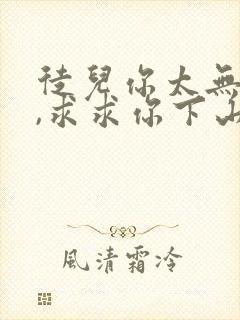 徒兒你太無
,求求你下山
風清霜冷